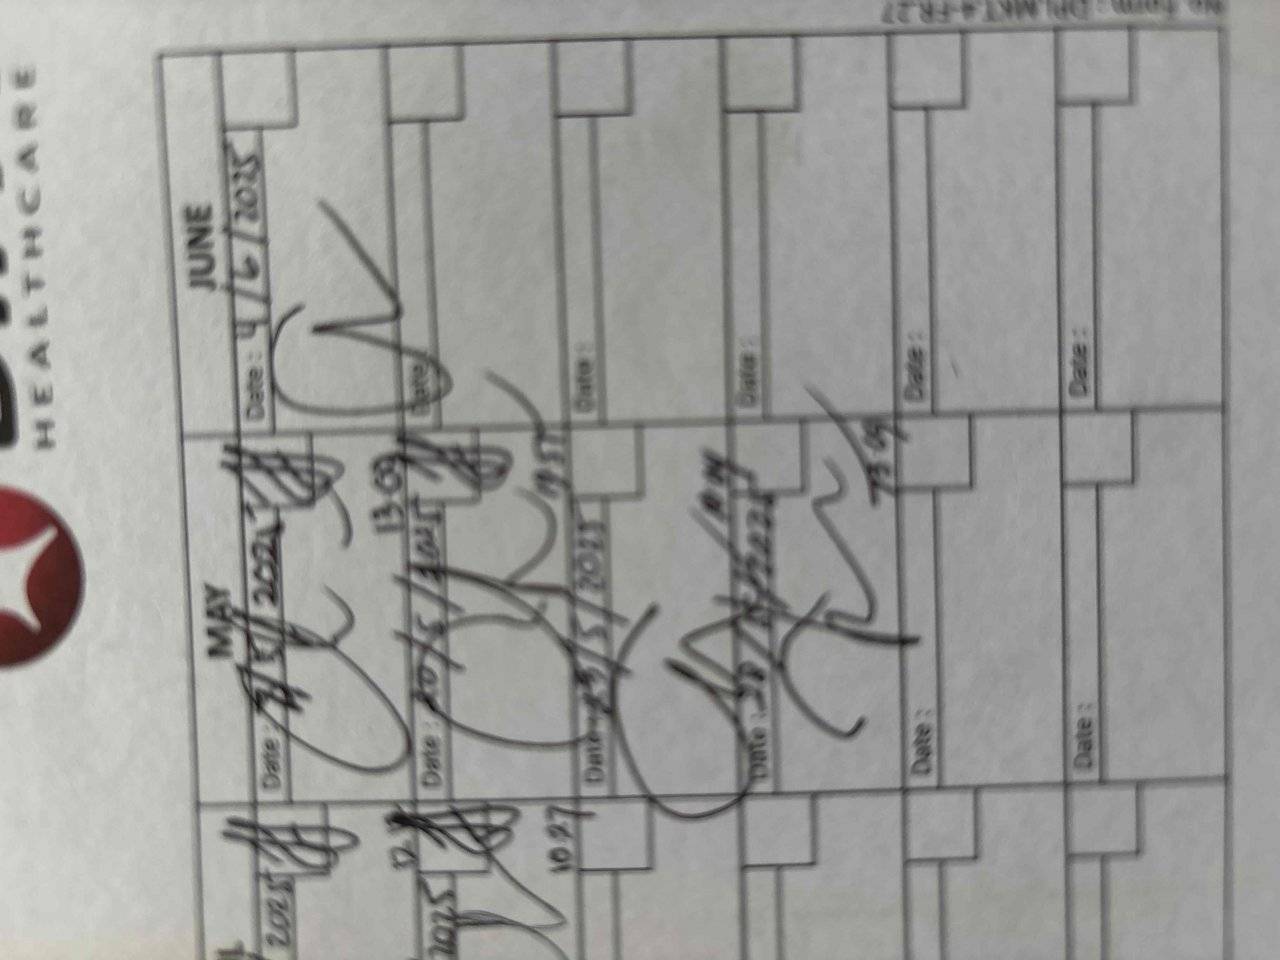 HEALTHCARE
MAY
JUNE
2025
Date :
Date : 4/6/2025
13:09
2025
Date : 20/5/2025
Date
10.27
Date : 23/5/2025
Date :
Date : 28/5/2025
Date :
13.09
Date :
Date :
Date :
Date :
No Form : DPI.MKT.4-FR.27